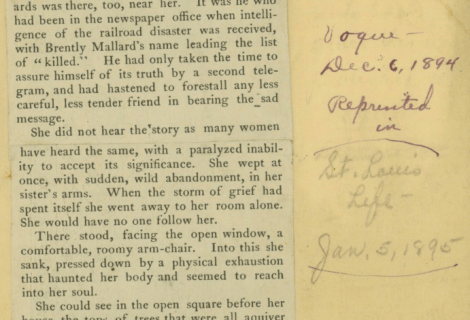 ards was there, too, near her. It was he who
had been in the newspaper office when intelli-
gence of the railroad disaster was received,
with Brently Mallard's name leading the list
of "killed." He had only taken the time to
assure himself of its truth by a second tele-
gram, and had hastened to forestall any less
careful, less tender friend in bearing the sad
message.
She did not hear the story as many women
have heard the same, with a paralyzed inabil-
ity to accept its significance. She wept at
once, with sudden, wild abandonment, in her
sister's arms. When the storm of grief had
spent itself she went away to her room alone.
She would have no one follow her.
There stood, facing the open window, a
comfortable, roomy arm-chair. Into this she
sank, pressed down by a physical exhaustion
that haunted her body and seemed to reach
into her soul.
She could see in the open square before her
house the tops of trees that were all aquiver
Vogue –
Dec. 6, 1894
Reprinted
in
St. Louis
Life –
Jan. 5, 1895